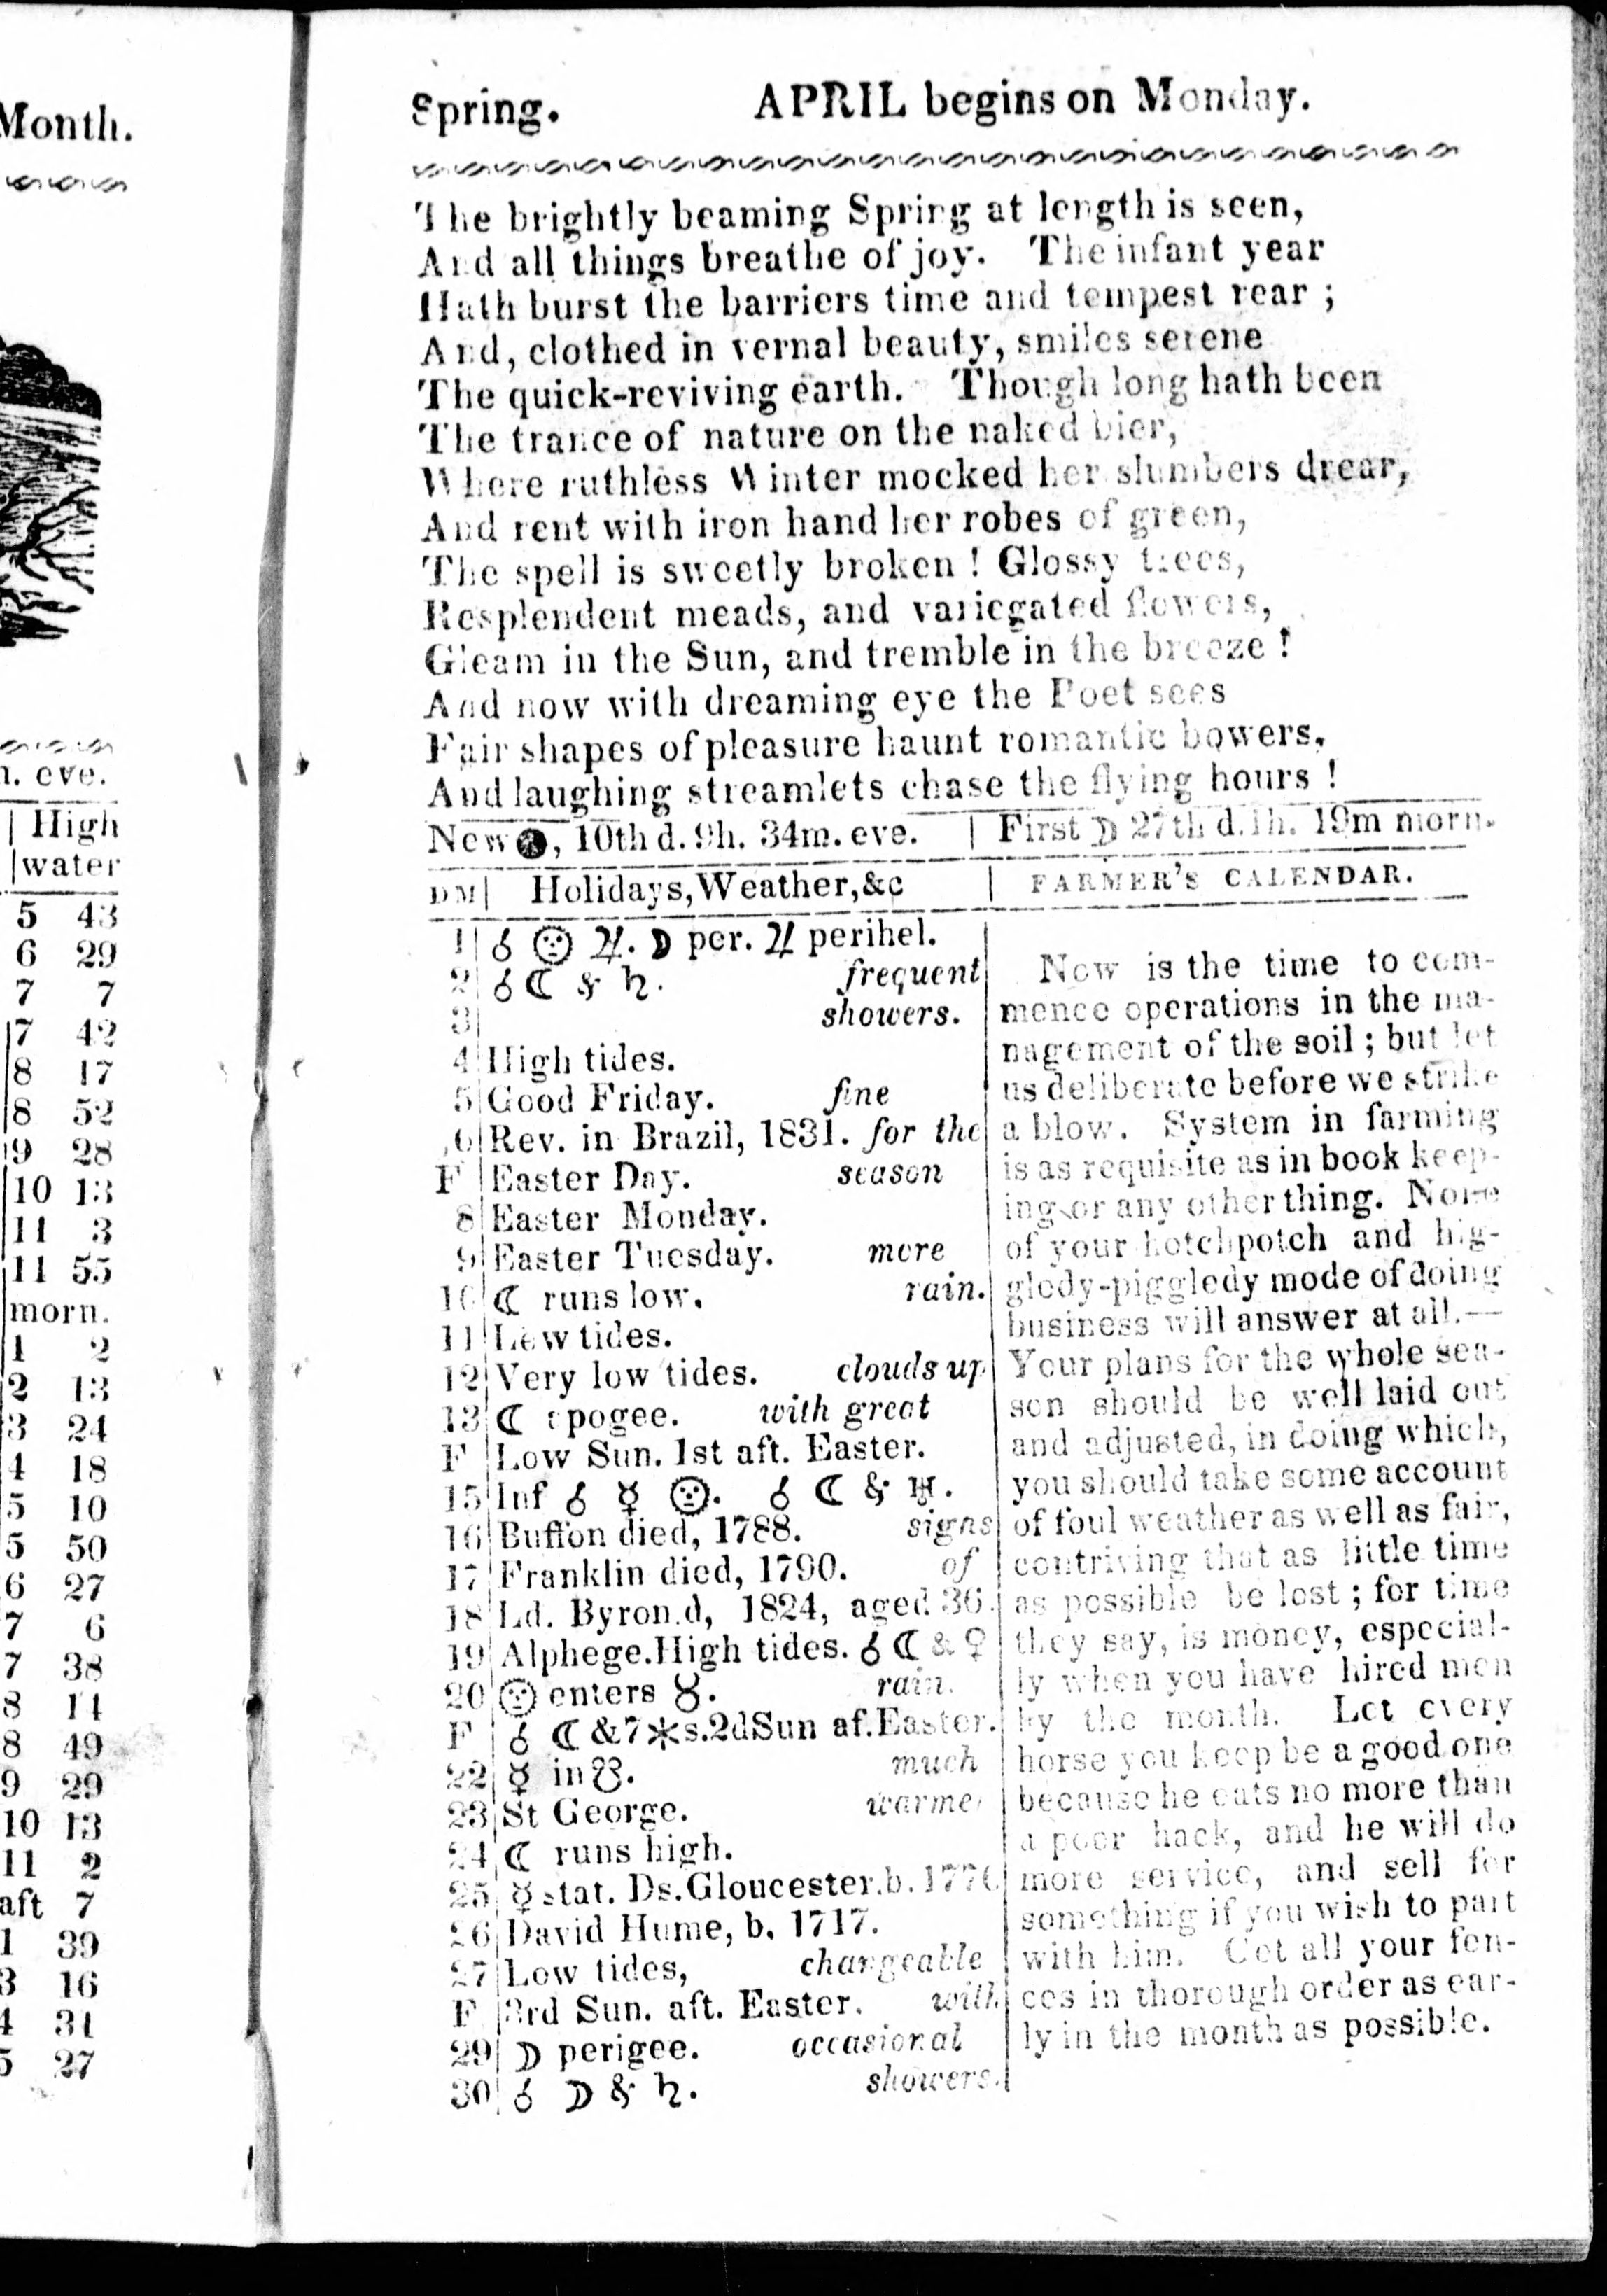 Month.
n. eve.
High
water
5 43
6 29
7 7
7 42
8 17
8 52
9 28
10 13
11 3
11 55
morn.
1 2
2 13
3 24
4 18
5 10
5 50
6 27
7 6
7 38
8 14
8 49
9 29
10 13
11 2
aft 7
1 39
3 16
4 31
5 27
Spring. APRIL begins on Monday.
The brightly beaming Spring at length is seen,
And all things breathe of joy. The infant year
Hath burst the barriers time and tempest rear ;
And, clothed in vernal beauty, smiles serene
The quick-reviving earth. Though long hath been
The trance of nature on the naked bier,
Where ruthless Winter mocked her slumbers drear,
And rent with iron hand her robes of green,
The spell is sweetly broken ! Glossy trees,
Resplendent meads, and variegated flowers,
Gleam in the Sun, and tremble in the breeze !
And now with dreaming eye the Poet sees
Fair shapes of pleasure haunt romantic bowers,
And laughing streamlets chase the flying hours !
New ●, 10th d. 9h. 34m. eve. | First ☽ 27th d. 1h. 19m morn.
DM | Holidays, Weather, &c | FARMER'S CALENDAR.
1 ☌ ☉ ♃. ☽ per. ♃ perihel.
2 ☌ ☾ & ♄. frequent
3 showers.
4 High tides.
5 Good Friday. fine
6 Rev. in Brazil, 1831. for the
F Easter Day. season
8 Easter Monday.
9 Easter Tuesday. more
10 ☾ runs low. rain.
11 Low tides.
12 Very low tides. clouds up
13 ☾ apogee. with great
F Low Sun. 1st aft. Easter.
15 Inf ☌ ☿ ☉. ☌ ☾ & ♅.
16 Buffon died, 1788. signs
17 Franklin died, 1790. of
18 Ld. Byron d, 1824, aged 36.
19 Alphege. High tides. ☌ ☾ & ♀
20 ☉ enters ♉. rain.
F ☌ ☾ & 7*s. 2d Sun af. Easter.
22 ☿ in ☋. much
23 St George. warmer
24 ☾ runs high.
25 ☿ stat. Ds. Gloucester. b. 1776
26 David Hume, b. 1717.
27 Low tides, changeable
F 3rd Sun. aft. Easter. with
29 ☽ perigee. occasional
30 ☌ ☽ & ♄. showers.
Now is the time to com-
mence operations in the ma-
nagement of the soil ; but let
us deliberate before we strike
a blow. System in farming
is as requisite as in book keep-
ing or any other thing. None
of your hotchpotch and hig-
gledy-piggledy mode of doing
business will answer at all.—
Your plans for the whole sea-
son should be well laid out
and adjusted, in doing which,
you should take some account
of foul weather as well as fair,
contriving that as little time
as possible be lost ; for time
they say, is money, especial-
ly when you have hired men
by the month. Let every
horse you keep be a good one
because he eats no more than
a poor hack, and he will do
more service, and sell for
something if you wish to part
with him. Get all your fen-
ces in thorough order as ear-
ly in the month as possible.